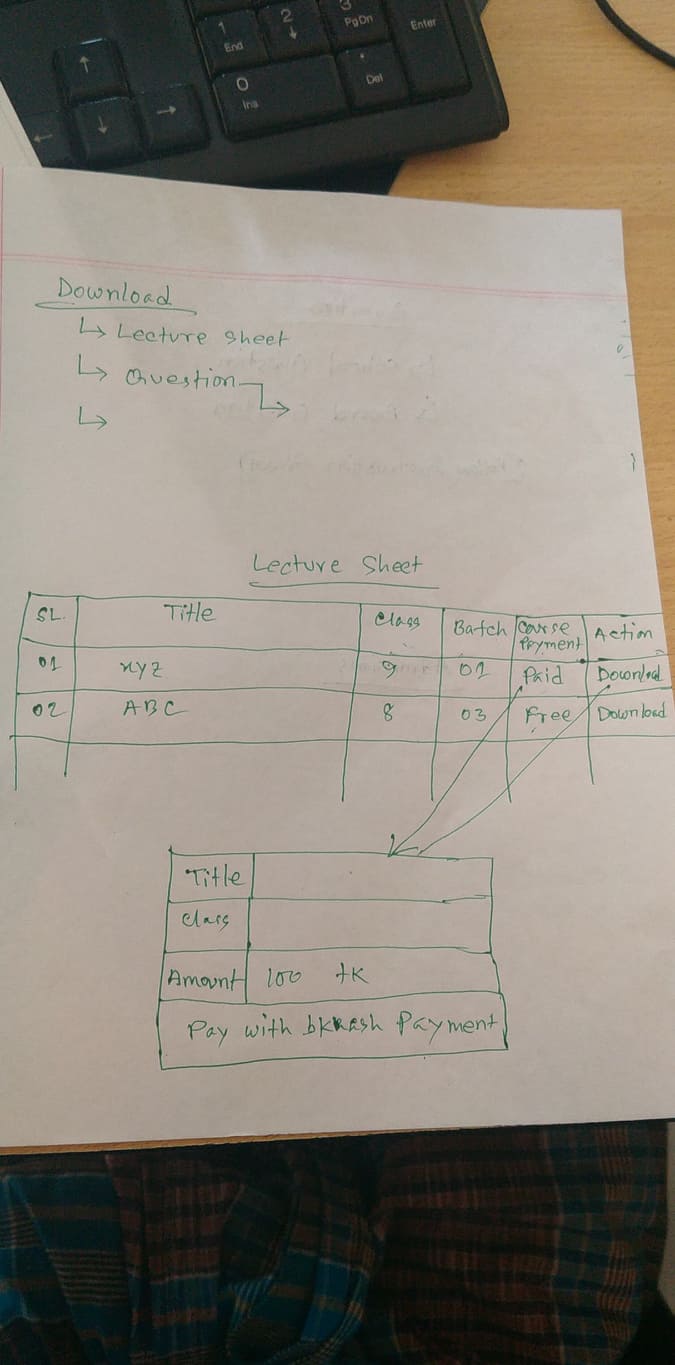 1
End
2
3
PgDn
Enter
0
Ins
Del
Download
↳ Lecture sheet
↳ Question ↳
↳
Lecture Sheet
SL. Title Class Batch Course Payment Action
01 xyz 9 02 Paid Downlod
02 ABC 8 03 Free Download
Title
Class
Amount 100 tk
Pay with bkash Payment